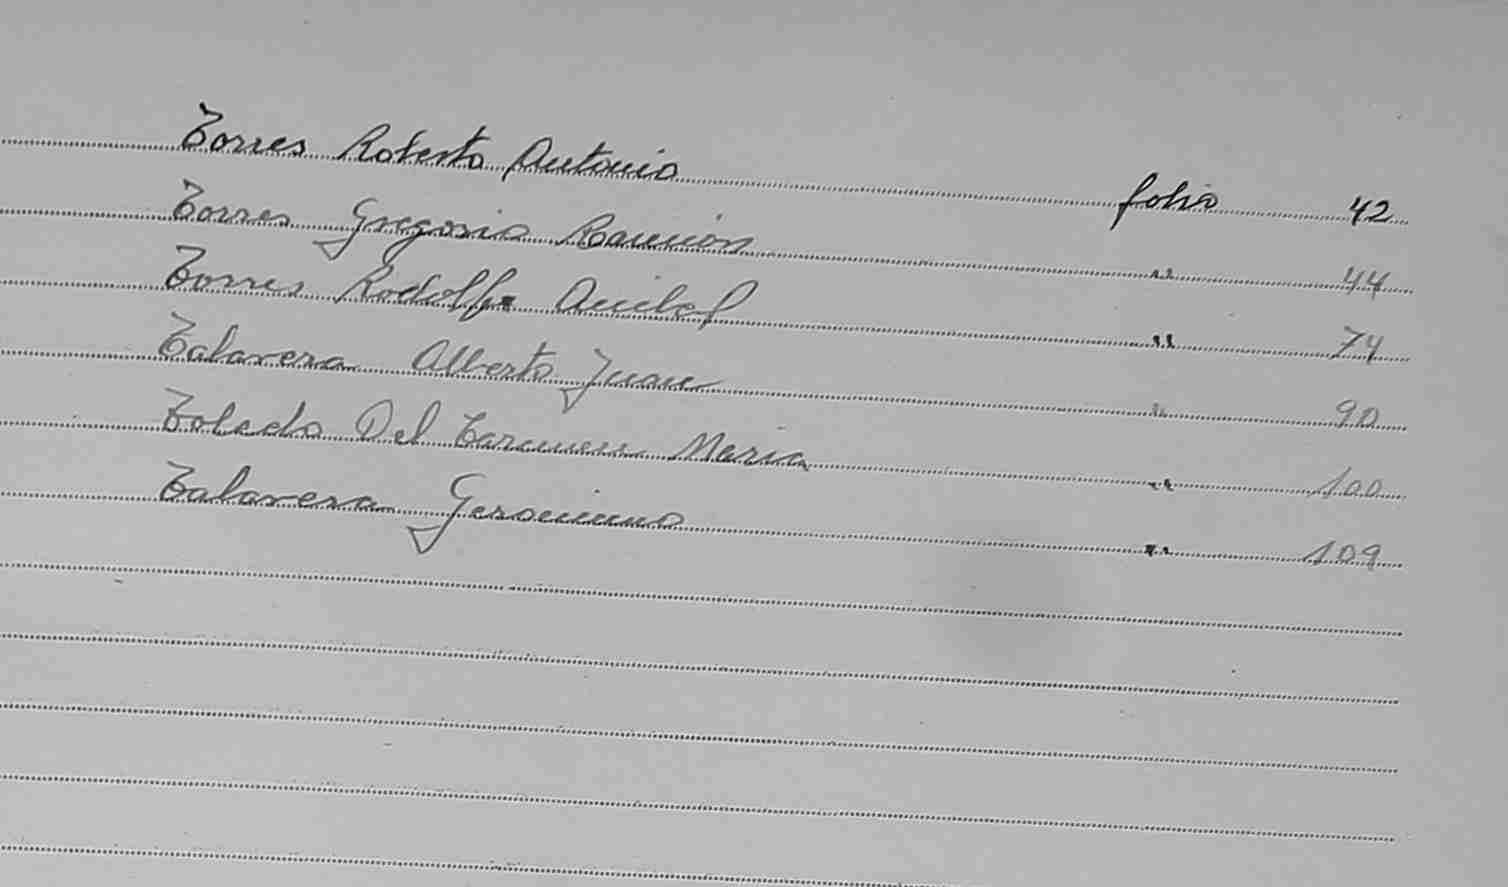 Torres Roberto Antonio folio 42
Torres Gregorio Ramón " 44
Torres Rodolfo Anibal " 74
Talavera Alberto Juan " 90
Toledo Del Carmen Maria " 100
Talavera Geronimo " 109